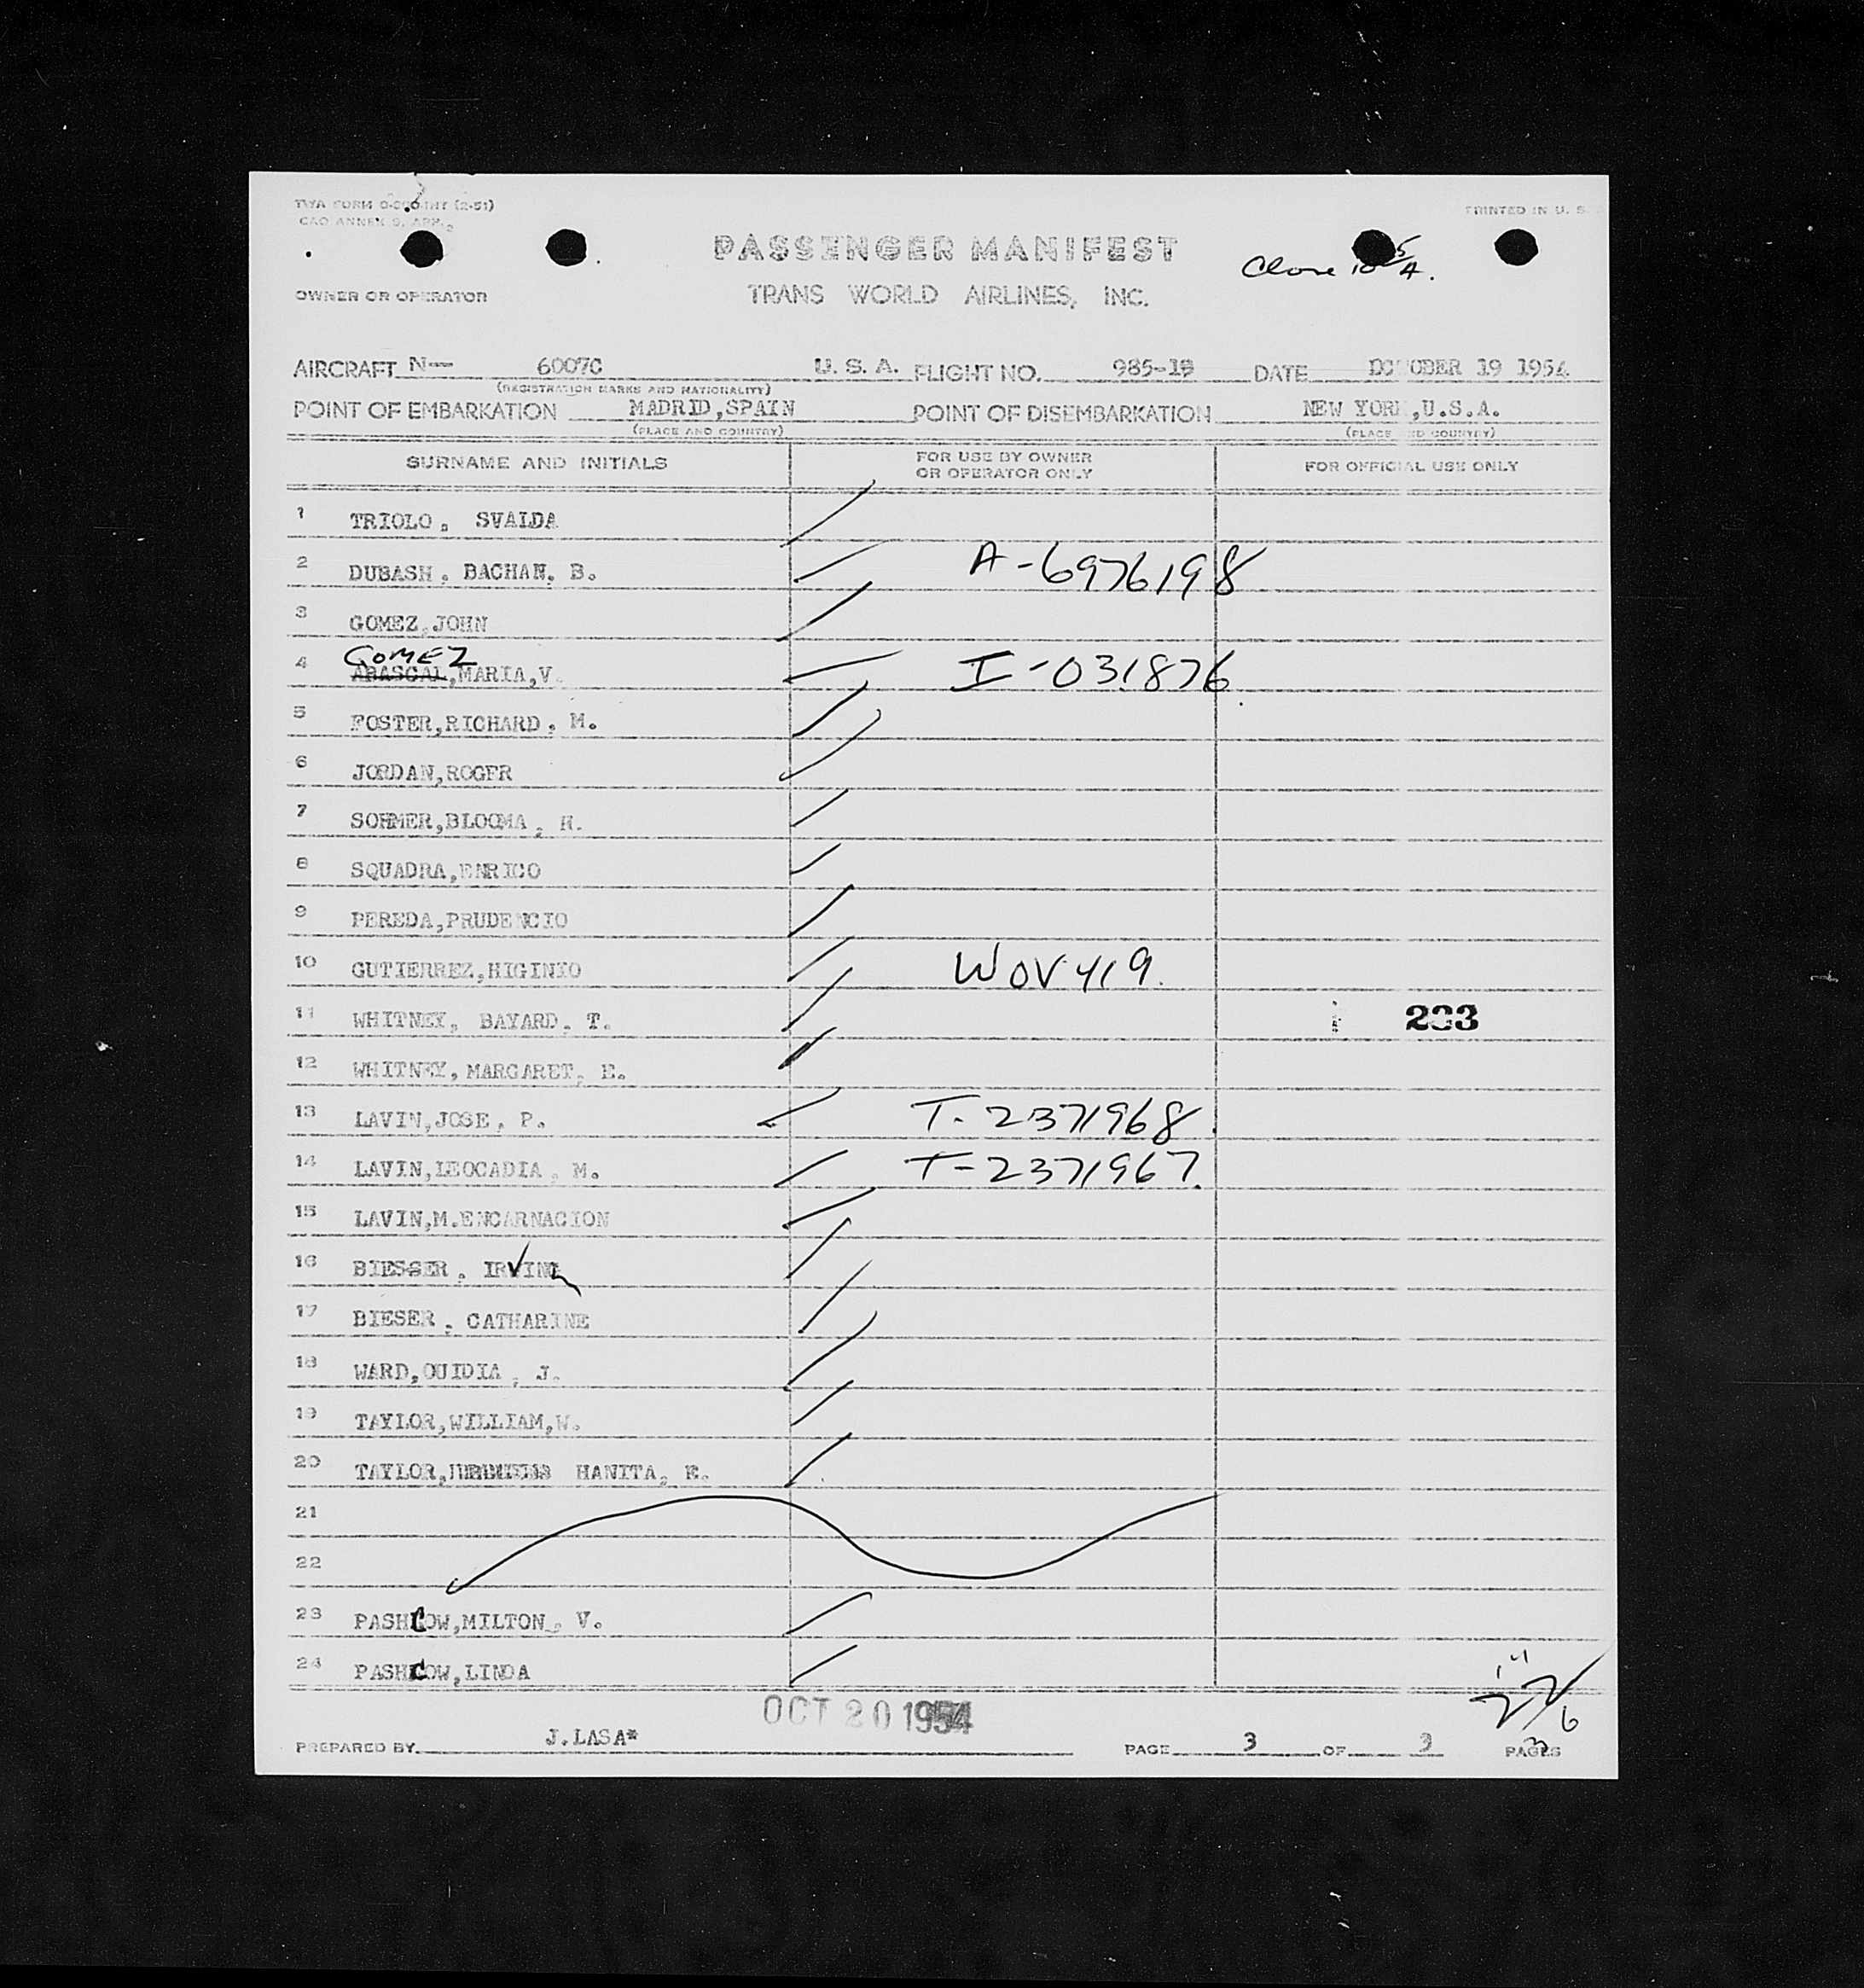 PRINTED IN U. S.
PASSENGER MANIFEST
TRANS WORLD AIRLINES, INC.
OWNER OR OPERATOR
AIRCRAFT N— 6007C U. S. A. FLIGHT NO. 985-19 DATE OCTOBER 19 1954
(REGISTRATION MARKS AND NATIONALITY)
POINT OF EMBARKATION MADRID,SPAIN POINT OF DISEMBARKATION NEW YORK,U.S.A.
(PLACE AND COUNTRY) (PLACE AND COUNTRY)
SURNAME AND INITIALS FOR USE BY OWNER OR OPERATOR ONLY FOR OFFICIAL USE ONLY
1 TRIOLO, SVALDA
2 DUBASH, BACHAN, B. A-6976198
3 GOMEZ,JOHN
GOMEZ
4 ABASCAL,MARIA,V. I-031876
5 FOSTER,RICHARD, M.
6 JORDAN,ROGER
7 SOHMER,BLOOMA, H.
8 SQUADRA,ENRICO
9 PEREDA,PRUDENCIO
10 GUTIERREZ,HIGINIO WOV419.
11 WHITNEY, BAYARD, T. 233
12 WHITNEY, MARGARET, E.
13 LAVIN,JOSE, P. T-2371968
14 LAVIN,LEOCADIA, M. T-2371967.
15 LAVIN,M.ENCARNACION
16 BIESSER, IRVING
17 BIESER, CATHARINE
18 WARD,OUIDIA, J.
19 TAYLOR,WILLIAM,W.
20 TAYLOR, HANITA, E.
21
22
23 PASHCOW,MILTON, V.
24 PASHCOW,LINDA
OCT 20 1954
PREPARED BY J.LASA* PAGE 3 OF 3 PAGES